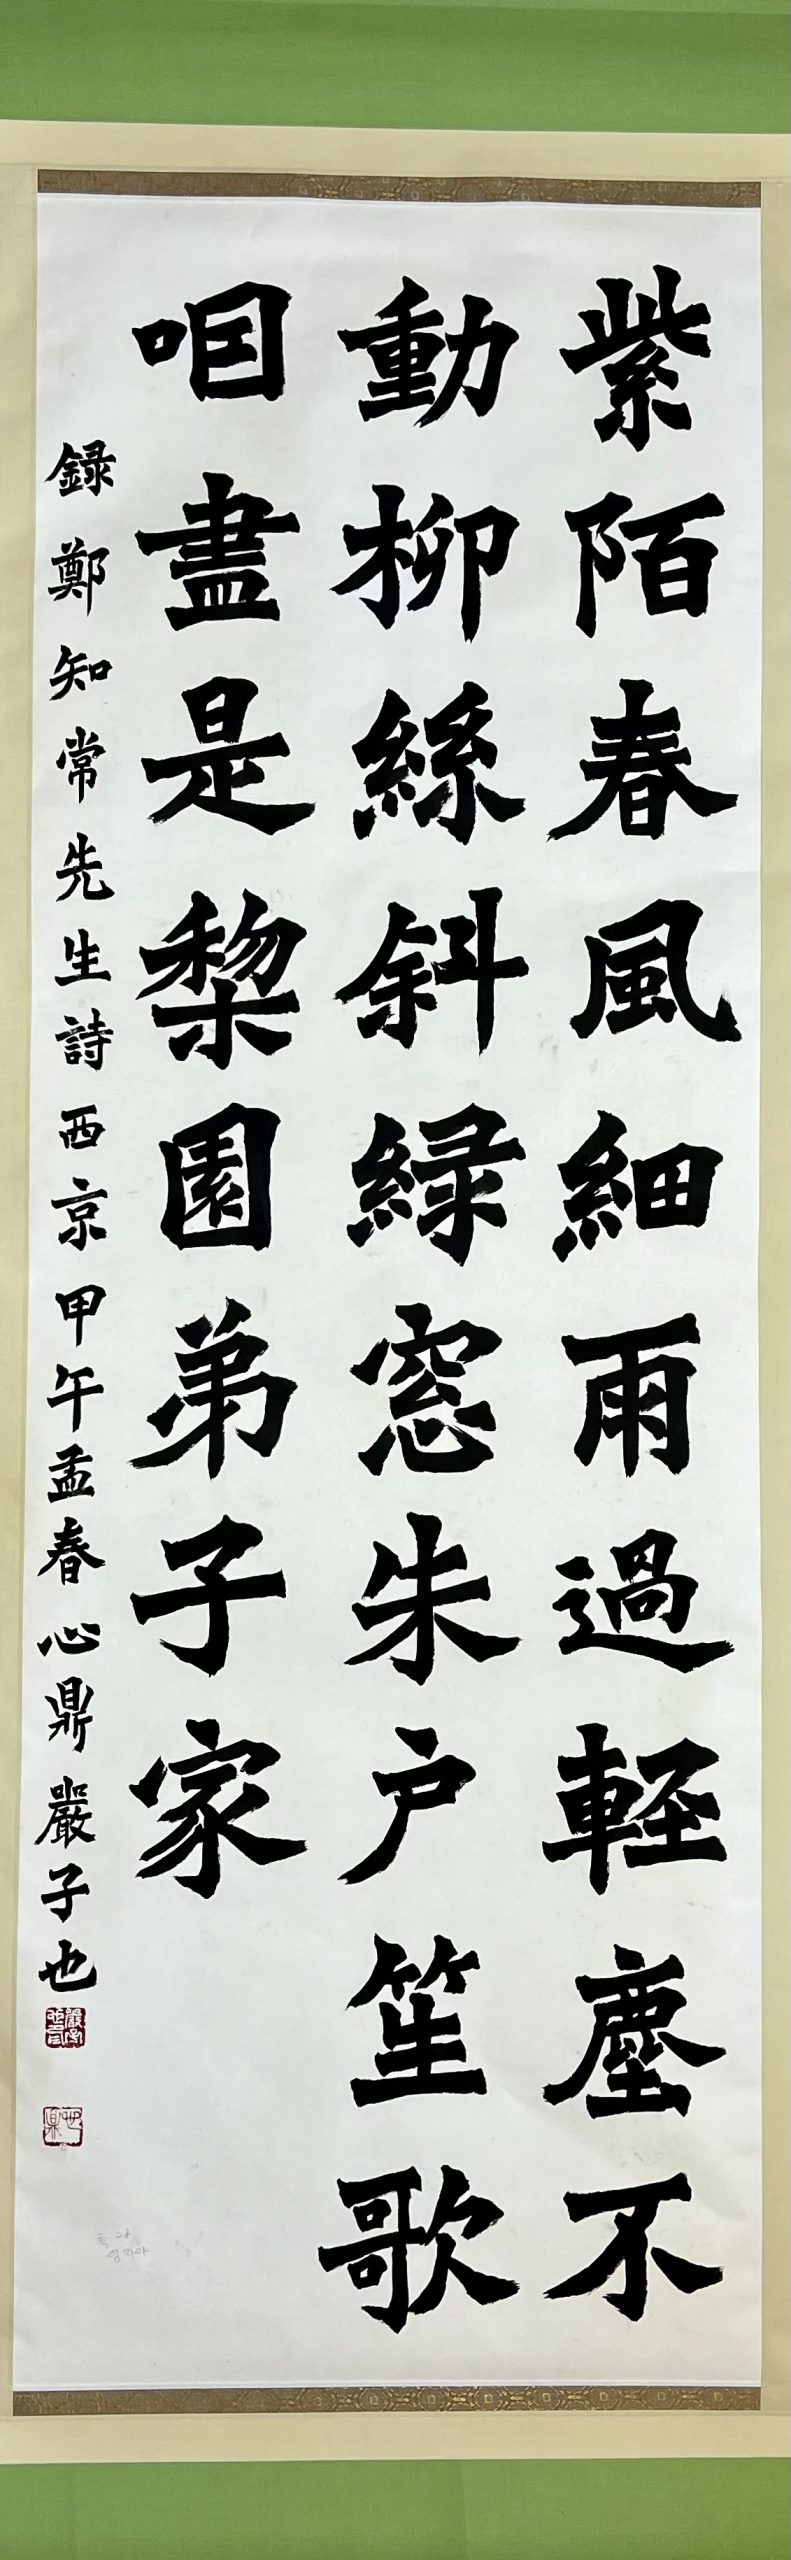 紫陌春風細雨過軽塵不
動柳絲斜緑窓朱户笙歌
咽盡是棃園弟子家
録鄭知常先生詩西京甲午孟春心鼎嚴子也